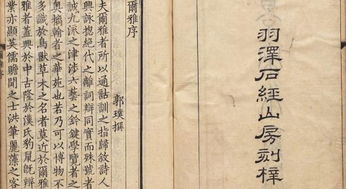 羽澤石經山房刻梓
爾雅序
郭璞撰
夫爾雅者所以通詁訓之指歸敘詩人
興詠揔絕代之離詞辯同實而殊號者
誠九流之津涉六藝之鈐鍵學覽者之
奧摛翰者之華苑也若乃可以博物不
多識於鳥獸草木之名者莫近於爾雅
雅者蓋興於中古隆於漢氏豹鼠既辯
業亦顯英儒贍聞之士洪筆麗藻之客